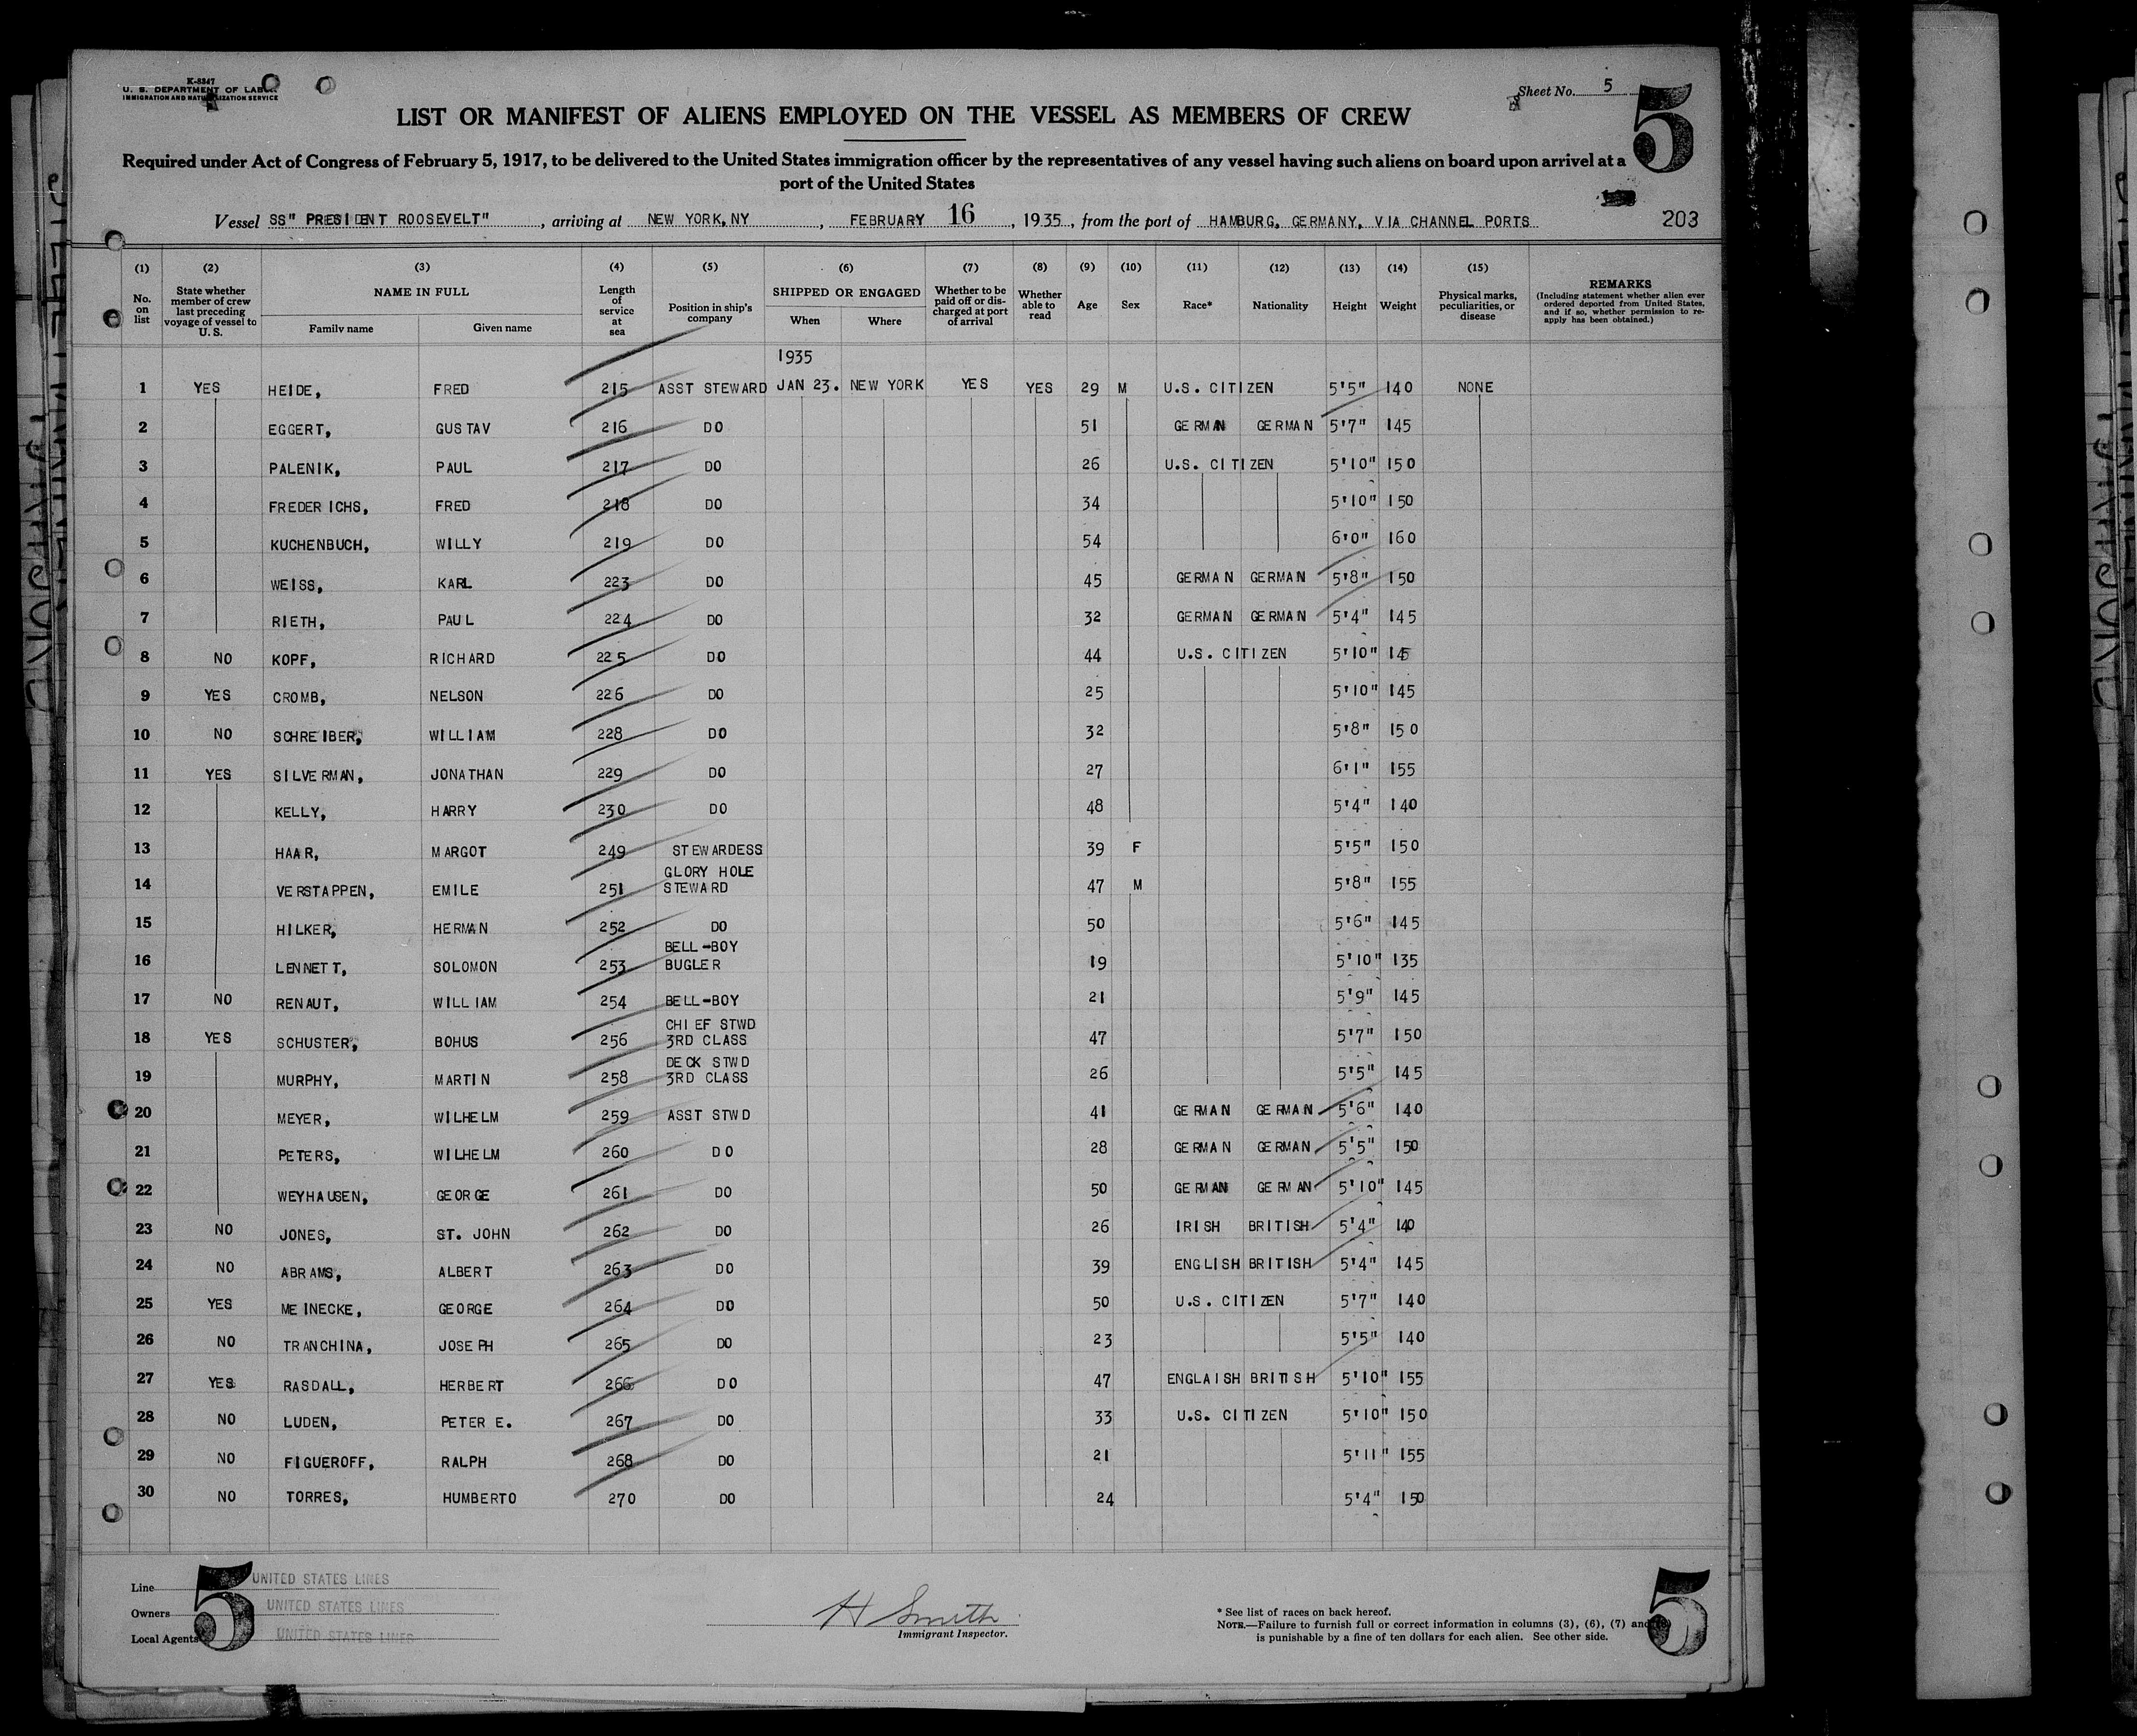 K-8347
U. S. DEPARTMENT OF LABOR
IMMIGRATION AND NATURALIZATION SERVICE
Sheet No. 5
5
LIST OR MANIFEST OF ALIENS EMPLOYED ON THE VESSEL AS MEMBERS OF CREW
Required under Act of Congress of February 5, 1917, to be delivered to the United States immigration officer by the representatives of any vessel having such aliens on board upon arrival at a
port of the United States
Vessel SS" PRESIDENT ROOSEVELT", arriving at NEW YORK, NY, FEBRUARY 16, 1935, from the port of HAMBURG, GERMANY, VIA CHANNEL PORTS 203
(1) (2) (3) (4) (5) (6) (7) (8) (9) (10) (11) (12) (13) (14) (15)
No. on list State whether member of crew last preceding voyage of vessel to U. S. NAME IN FULL Family name Given name Length of service at sea Position in ship's company SHIPPED OR ENGAGED When Where Whether to be paid off or discharged at port of arrival Whether able to read Age Sex Race* Nationality Height Weight Physical marks, peculiarities, or disease REMARKS (Including statement whether alien ever ordered deported from United States, and if so, whether permission to re-apply has been obtained.)
1935
1 YES HEIDE, FRED 215 ASST STEWARD JAN 23. NEW YORK YES YES 29 M U.S. CITIZEN 5'5" 140 NONE
2 EGGERT, GUSTAV 216 DO 51 GERMAN GERMAN 5'7" 145
3 PALENIK, PAUL 217 DO 26 U.S. CITIZEN 5'10" 150
4 FREDERICHS, FRED 218 DO 34 5'10" 150
5 KUCHENBUCH, WILLY 219 DO 54 6'0" 160
6 WEISS, KARL 223 DO 45 GERMAN GERMAN 5'8" 150
7 RIETH, PAUL 224 DO 32 GERMAN GERMAN 5'4" 145
8 NO KOPF, RICHARD 225 DO 44 U.S. CITIZEN 5'10" 145
9 YES CROMB, NELSON 226 DO 25 5'10" 145
10 NO SCHREIBER, WILLIAM 228 DO 32 5'8" 150
11 YES SILVERMAN, JONATHAN 229 DO 27 6'1" 155
12 KELLY, HARRY 230 DO 48 5'4" 140
13 HAAR, MARGOT 249 STEWARDESS 39 F 5'5" 150
14 VERSTAPPEN, EMILE 251 GLORY HOLE STEWARD 47 M 5'8" 155
15 HILKER, HERMAN 252 DO 50 5'6" 145
16 LENNETT, SOLOMON 253 BELL-BOY BUGLER 19 5'10" 135
17 NO RENAUT, WILLIAM 254 BELL-BOY 21 5'9" 145
18 YES SCHUSTER, BOHUS 256 CHIEF STWD 3RD CLASS 47 5'7" 150
19 MURPHY, MARTIN 258 DECK STWD 3RD CLASS 26 5'5" 145
20 MEYER, WILHELM 259 ASST STWD 41 GERMAN GERMAN 5'6" 140
21 PETERS, WILHELM 260 DO 28 GERMAN GERMAN 5'5" 150
22 WEYHAUSEN, GEORGE 261 DO 50 GERMAN GERMAN 5'10" 145
23 NO JONES, ST. JOHN 262 DO 26 IRISH BRITISH 5'4" 140
24 NO ABRAMS, ALBERT 263 DO 39 ENGLISH BRITISH 5'4" 145
25 YES MEINECKE, GEORGE 264 DO 50 U.S. CITIZEN 5'7" 140
26 NO TRANCHINA, JOSEPH 265 DO 23 5'5" 140
27 YES RASDALL, HERBERT 266 DO 47 ENGLAISH BRITISH 5'10" 155
28 NO LUDEN, PETER E. 267 DO 33 U.S. CITIZEN 5'10" 150
29 NO FIGUEROFF, RALPH 268 DO 21 5'11" 155
30 NO TORRES, HUMBERTO 270 DO 24 5'4" 150
5
Line UNITED STATES LINES
Owners UNITED STATES LINES
Local Agents UNITED STATES LINES
H Smith
Immigrant Inspector.
* See list of races on back hereof.
NOTE.—Failure to furnish full or correct information in columns (3), (6), (7) and
is punishable by a fine of ten dollars for each alien. See other side.
5